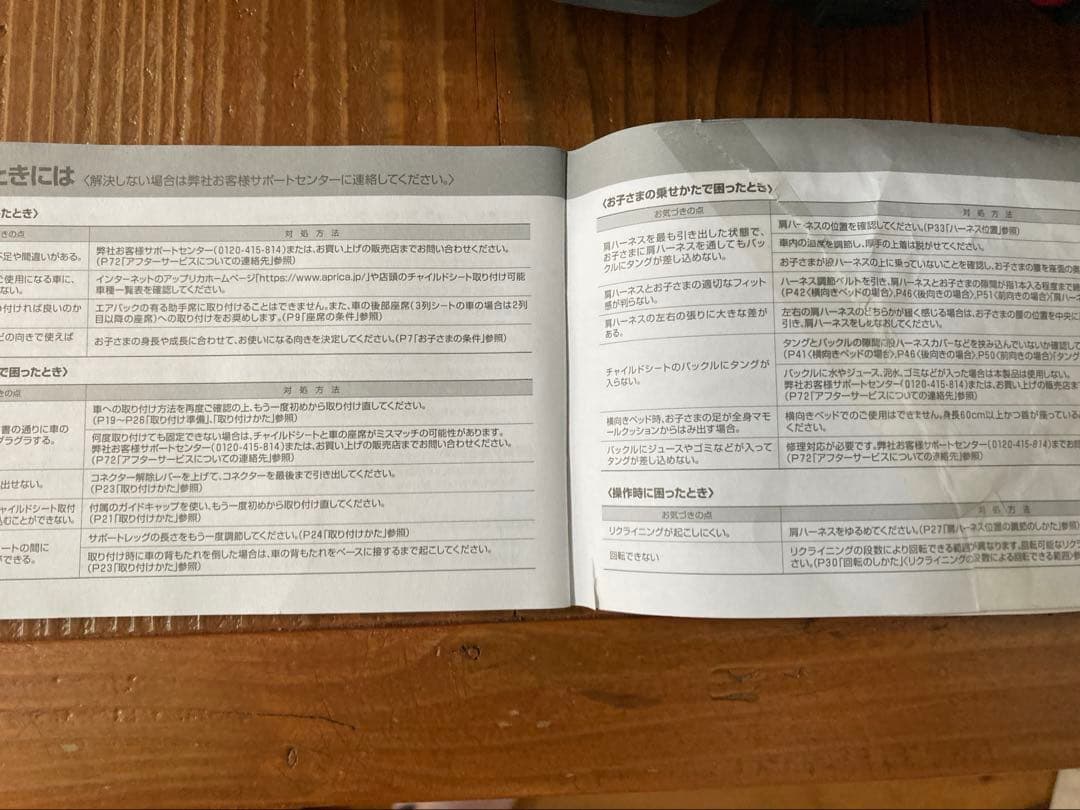 ときには 〈解決しない場合は弊社お客様サポートセンターに連絡してください。〉
たとき〉
きの点
対 処 方 法
不足や間違いがある。
弊社お客様サポートセンター(0120-415-814)または、お買い上げの販売店までお問い合わせください。
(P72「アフターサービスについての連絡先」参照)
ご使用になる車に、
ない。
インターネットのアップリカホームページ「https://www.aprica.jp/」や店頭のチャイルドシート取り付け可能
車種一覧表を確認してください。
り付ければ良いのか
エアバックの有る助手席に取り付けることはできません。また、車の後部座席(3列シートの車の場合は2列
目以降の座席)への取り付けをお奨めします。(P9「座席の条件」参照)
どの向きで使えば
お子さまの身長や成長に合わせて、お使いになる向きを決定してください。(P7「お子さまの条件」参照)
で困ったとき〉
きの点
対 処 方 法
書の通りに車の
グラグラする。
車への取り付け方法を再度ご確認の上、もう一度初めから取り付け直してください。
(P19〜P26「取り付け準備」、「取り付けかた」参照)
何度取り付けても固定できない場合は、チャイルドシートと車の座席がミスマッチの可能性があります。
弊社お客様サポートセンター(0120-415-814)または、お買い上げの販売店までお問い合わせください。
(P72「アフターサービスについての連絡先」参照)
出せない。
コネクター解除レバーを上げて、コネクターを最後まで引き出してください。
(P23「取り付けかた」参照)
ャイルドシート取付
込むことができない。
付属のガイドキャップを使い、もう一度初めから取り付け直してください。
(P21「取り付けかた」参照)
ートの間に
ができる。
サポートレッグの長さをもう一度調節してください。(P24「取り付けかた」参照)
取り付け時に車の背もたれを倒した場合は、車の背もたれをベースに接するまで起こしてください。
(P23「取り付けかた」参照)
〈お子さまの乗せかたで困ったとき〉
お気づきの点
対 処 方 法
肩ハーネスを最も引き出した状態で、
お子さまに肩ハーネスを通してもバッ
クルにタングが差し込めない。
肩ハーネスの位置を確認してください。(P33「ハーネス位置」参照)
車内の温度を調節し、厚手の上着は脱がせてください。
お子さまが股ハーネスの上に乗っていないことを確認し、お子さまの腰を座面の奥
肩ハーネスとお子さまの適切なフィット
感が判らない。
ハーネス調節ベルトを引き、肩ハーネスとお子さまの隙間が指1本入る程度まで締
(P42〈横向きベッドの場合〉、P46〈後向きの場合〉、P51〈前向きの場合〉「肩ハー
肩ハーネスの左右の張りに大きな差が
ある。
左右の肩ハーネスのどちらかが緩く感じる場合は、お子さまの腰の位置を中央に
引き、肩ハーネスをしめなおしてください。
チャイルドシートのバックルにタングが
入らない。
タングとバックルの隙間に股ハーネスカバーなどを挟み込んでいないか確認して
(P41〈横向きベッドの場合〉、P46〈後向きの場合〉、P50〈前向きの場合〉「タング
バックルに水やジュース、泥水、ゴミなどが入った場合は本製品は使用しない。
弊社お客様サポートセンター(0120-415-814)または、お買い上げの販売店まで
(P72「アフターサービスについての連絡先」参照)
横向きベッド時、お子さまの足が全身マモ
ールクッションからはみ出す場合。
横向きベッドでのご使用はできません。身長60cm以上かつ首が座っている
ください。
バックルにジュースやゴミなどが入って
タングが差し込めない。
修理対応が必要です。弊社お客様サポートセンター(0120-415-814)までお問
(P72「アフターサービスについての連絡先」参照)
〈操作時に困ったとき〉
お気づきの点
対 処 方
リクライニングが起こしにくい。
肩ハーネスをゆるめてください。(P27「肩ハーネス位置の調節のしかた」参照)
回転できない
リクライニングの段数により回転できる範囲が異なります。回転可能なリクラ
さい。(P30「回転のしかた」〈リクライニングの段数による回転できる範囲〉参